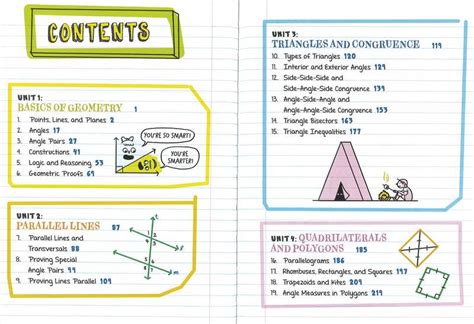 CONTENTS
UNIT 1:
BASICS OF GEOMETRY 1
1. Points, Lines, and Planes 2
2. Angles 17
3. Angle Pairs 27
4. Constructions 41
5. Logic and Reasoning 53
6. Geometric Proofs 69
YOU'RE SO SMART!
YOU'RE
SMARTER!
UNIT 2:
PARALLEL LINES 87
7. Parallel Lines and
Transversals 88
8. Proving Special
Angle Pairs 99
9. Proving Lines Parallel 109
1 2
4 3
5 6
8 7
t
s
m
UNIT 3:
TRIANGLES AND CONGRUENCE 119
10. Types of Triangles 120
11. Interior and Exterior Angles 129
12. Side-Side-Side and
Side-Angle-Side Congruence 139
13. Angle-Side-Angle and
Angle-Angle-Side Congruence 153
14. Triangle Bisectors 163
15. Triangle Inequalities 177
UNIT 4: QUADRILATERALS
AND POLYGONS 185
16. Parallelograms 186
17. Rhombuses, Rectangles, and Squares 197
18. Trapezoids and Kites 209
19. Angle Measures in Polygons 219